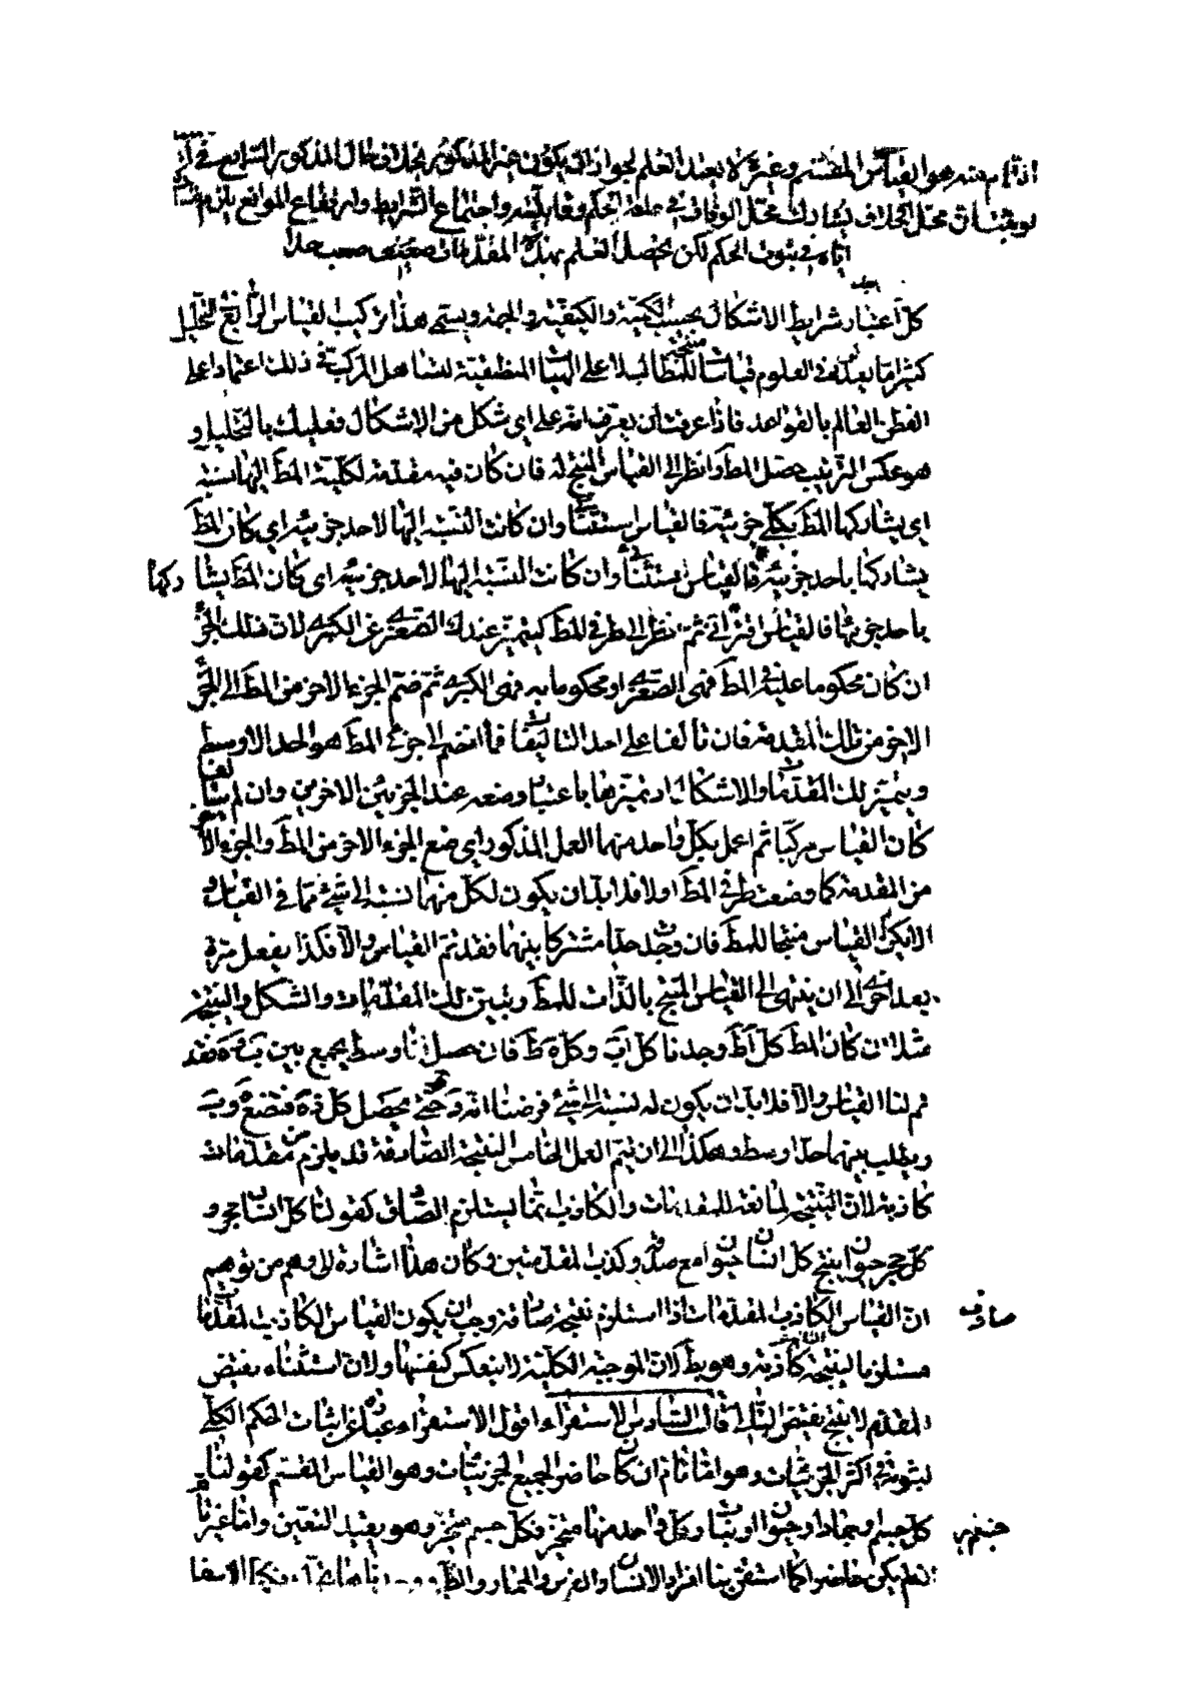 اذ التام منه هو القياس المقسم وغيره لا يفيد العلم لجواز ان يكون غير المذكور بخلاف حال المذكور الرابع في
محل الخلاف يشارك محل الوفاق في علة الحكم ومقابلته واجتماع الشرايط وارتفاع الموانع يلزم
اياه في ثبوت الحكم لكن تحصيل العلم بهذه المقدمات صعب جدا
كل اعتبار شرايط الاشكال بحسب الكمية والكيفية والجهة ويسمى هذا تركيب القياس الرابع التحليل
كثيرا ما يورد في العلوم قياسات منتجة للمطالب لا على الهيئات المنطقية لتساهل المركب في ذلك اعتمادا على
الفطن العالم بالقواعد فاذا عرفت ان يعرف انه على اي شكل من الاشكال فعليك بالتحليل و
هو عكس التركيب حصل المط وانظر الى القياس المنتج له فان كان فيه مقدمة لكلية المط اليها نسبة
اي يشاركها المط بكلي جزئيه فالقياس استثنائي وان كانت النسبة اليها لاحد جزئيه اي كان المط
يشاركها باحد جزئيه فالقياس استثنائي وان كانت النسبة اليها لاحد جزئيه اي كان المط يشاركها
باحد جزئها فالقياس اقتراني ثم انظر الى طرفي المط ليتميز عندك الصغرى عن الكبرى لان ذلك الجزء
ان كان محكوما عليه في المط فهي الصغرى او محكوما به فهي الكبرى ثم ضم الجزء الاخر من المط الى الجزء
الاخر من تلك المقدمة فان تألفا على احد التاليفات فما انضم الى جزئي المط هو الحد الاوسط
ويتميز لك المقدمات والاشكال اذ تميزها باعتبار وضعه عند الجزئين الاخرين وان لم يتألفا
كان القياس مركبا ثم اعمل بكل واحد منهما العمل المذكور اي ضع الجزء الاخر من المط والجزء الا
من المقدمة كما وضعت طرفي المط اولا فلا بد ان يكون لكل منهما نسبة الى شيء مما في القياس و
الا لم يكن القياس منتجا للمط فان وجدت حدا مشتركا بينهما فقد تم القياس والا فكذا يفعل مرة
بعد اخرى الى ان ينتهي الى القياس المنتج بالذات للمط ويتبين لك المقدمات والشكل والنتيجة
مثلا ان كان المط كل اط وجدنا كل اب وكل ه ط فان حصل لنا وسط يجمع بين ب و ه فقد
تم لنا القياس والا فلا بد ان يكون له نسبة الى شيء فرضنا انه حتى يحصل كل د ه فنضع
ويطلب بينهما حد اوسط وهكذا الى ان يتم العمل الخامس النتيجة الصادقة قد يلزم من مقدمات
كاذبة لان النتيجة لما تبعه للمقدمات والكاذب مما يستلزم الصادق كقولنا كل انسان حجر و
كل حجر حيوان ينتج كل انسان حيوان مع صدقه وكذب المقدمتين وكان هذا اشارة الى وهم من توهم
ان القياس الكاذب المقدمات اذا استلزم نتيجة صادقة وجب ان يكون القياس الكاذب المقدمات
صادق
مستلزما لنتيجة كاذبة وهو بط لان الموجبة الكلية لا ينعكس كنفسها ولان استثناء نقيض
المقدم لا ينتج نقيض التالي قال السادس الاستقراء اقول الاستقراء عبارة عن اثبات الحكم الكلي
لثبوته في اكثر الجزئيات وهو اما تام ان كان حاضرا لجميع الجزئيات وهو القياس المقسم كقولنا
كل جسم او جماد او حيوان او نبات وكل واحد منها متحيز فكل جسم متحيز وهو يفيد اليقين واما غير تام
ان لم يكن حاضرا كما استقرينا افراد الانسان والفرس والحمار والطير